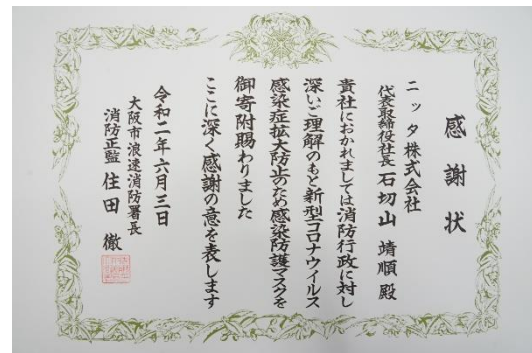 感謝状
ニッタ株式会社
代表取締役社長 石切山 靖順 殿
貴社におかれましては消防行政に対し
深いご理解のもと新型コロナウイルス
感染症拡大防止のため感染防護マスクを
御寄附賜わりました
ここに深く感謝の意を表します
令和二年六月三日
大阪市浪速消防署長
消防正監 住田 徹